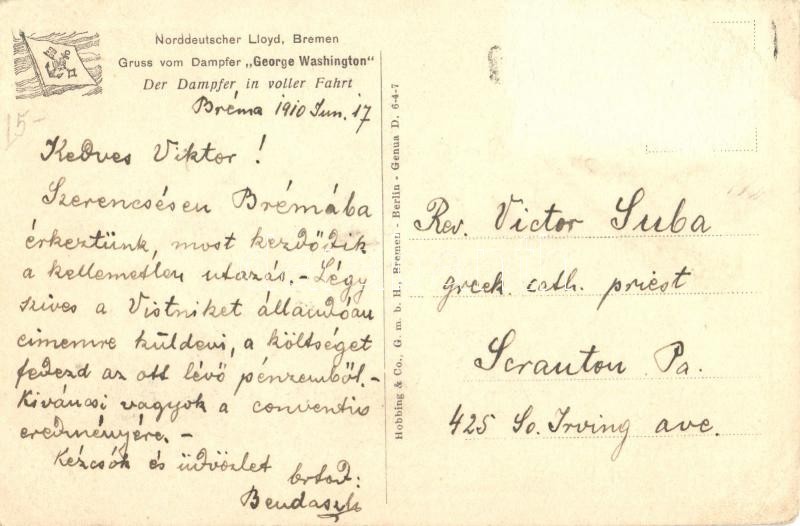 Norddeutscher Lloyd, Bremen
Gruss vom Dampfer „George Washington"
Der Dampfer in voller Fahrt
Bréma 1910 Jun. 17
Kedves Viktor!
Szerencsésen Brémába
érkeztünk, most kezdődik
a kellemetlen utazás.- Légy
szives a Vistniket állandóan
cimemre küldeni, a költséget
fedezd az ott lévő pénzemből.-
Kiváncsi vagyok a conventio
eredményére.-
Kézcsók és üdvözlet
Bendász
Hobbing & Co., G. m. b. H., Bremen - Berlin - Genua D. 6-4-7
Rev. Victor Suba
greek cath. priest
Scranton Pa.
425 So. Irving ave.
15-